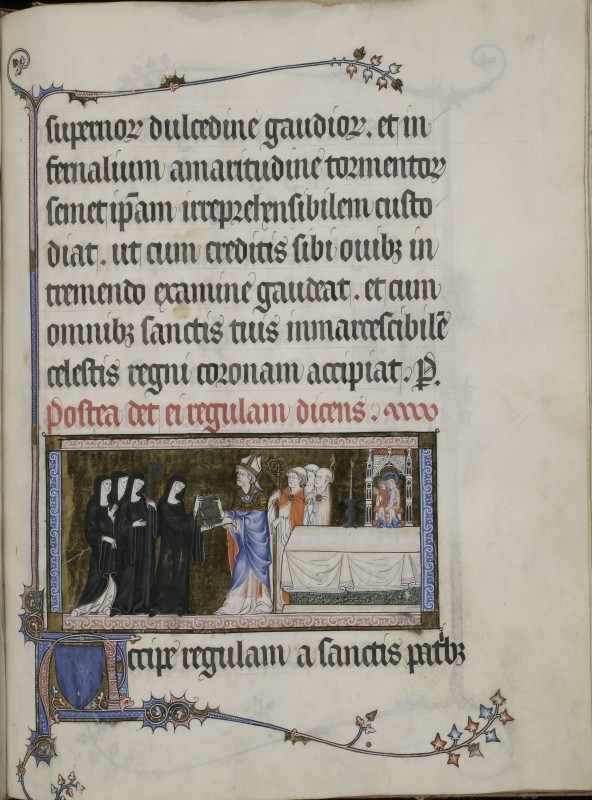 supernoꝝ dulcedine gaudioꝝ. et in
fernalium amaritudine tormentoꝝ
semet ip̄am irreprehensibilem custo
diat. ut cum creditis sibi ouibꝫ in
tremendo examine gaudeat. et cum
omnibꝫ sanctis tuis inmarcescibilē
celestis regni coronam accipiat. P̷.
Postea det ei regulam dicens.
Accipe regulam a sanctis patͥbꝫ